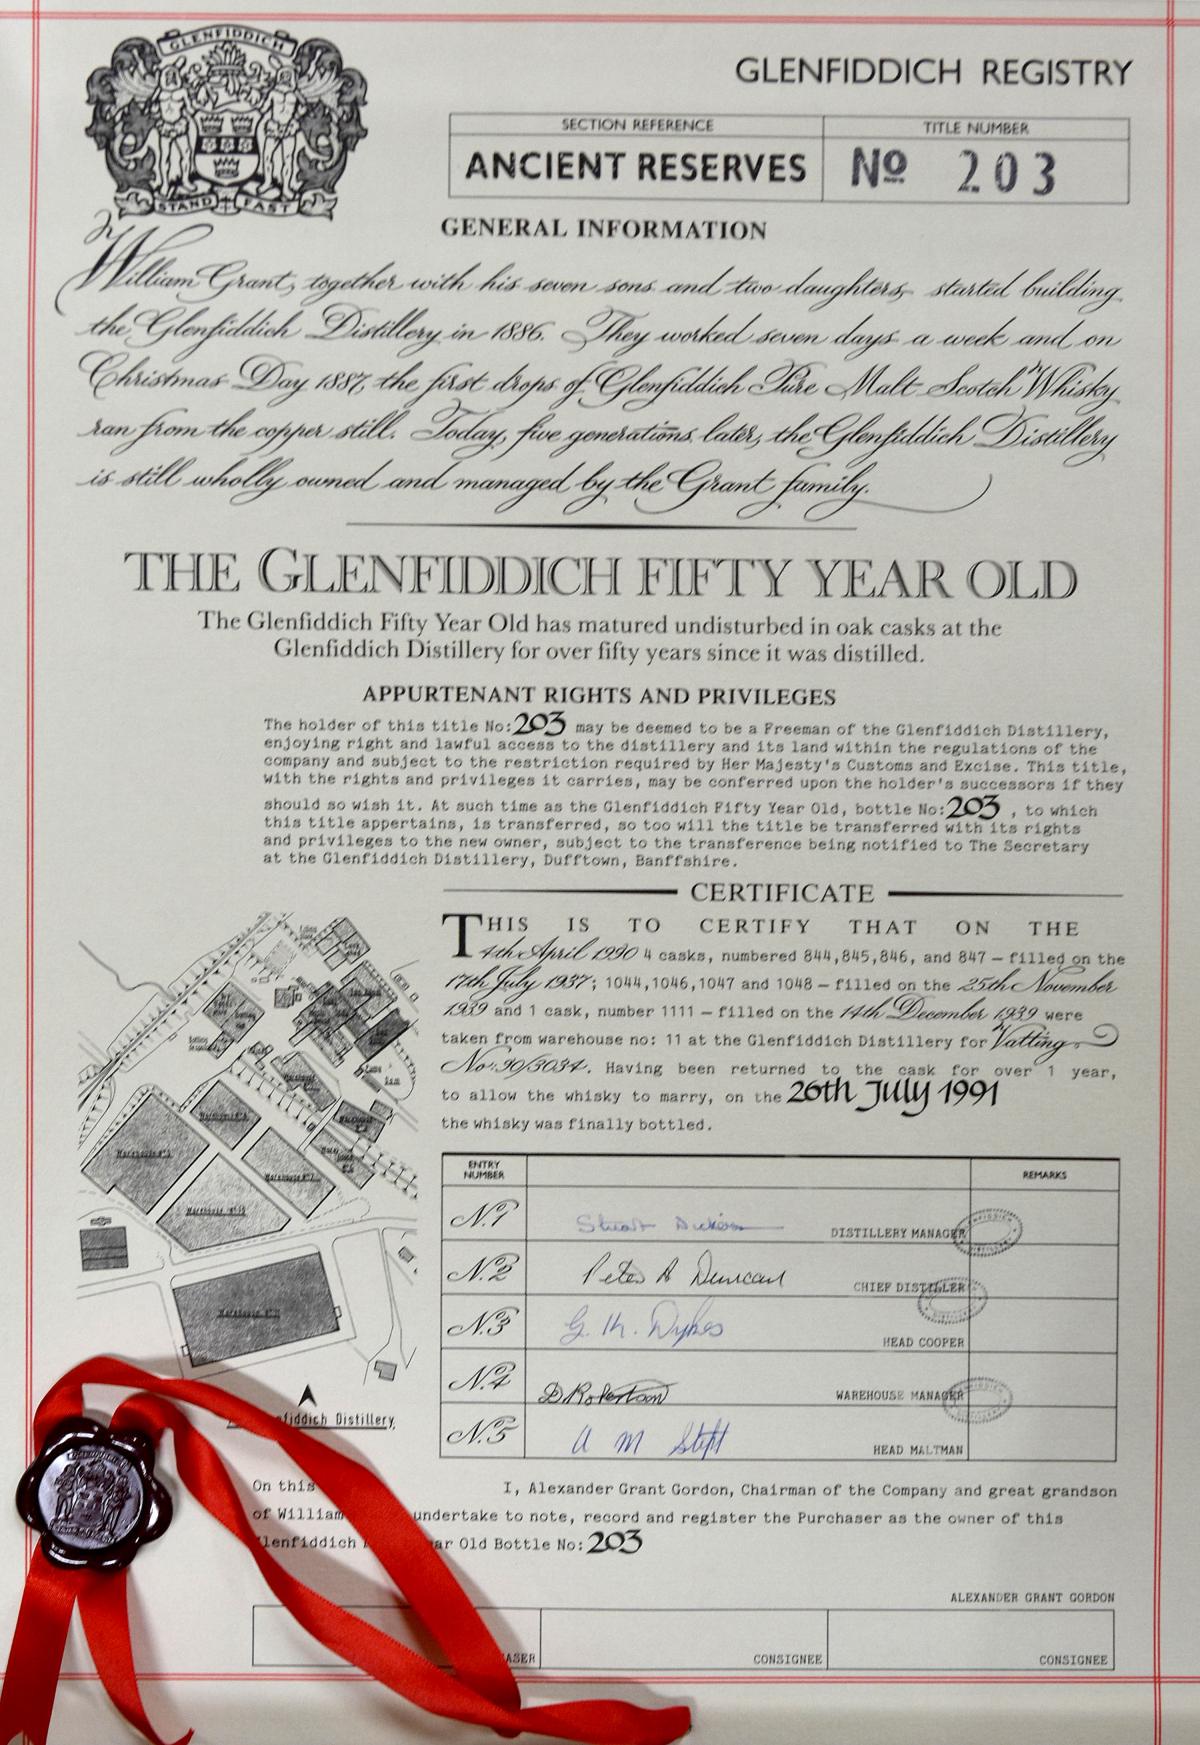 GLENFIDDICH
STAND FAST
GLENFIDDICH REGISTRY
SECTION REFERENCE
TITLE NUMBER
ANCIENT RESERVES
Nº 203
GENERAL INFORMATION
William Grant, together with his seven sons and two daughters, started building
the Glenfiddich Distillery in 1886. They worked seven days a week and on
Christmas Day 1887, the first drops of Glenfiddich Pure Malt Scotch Whisky
ran from the copper still. Today, five generations later, the Glenfiddich Distillery
is still wholly owned and managed by the Grant family.
THE GLENFIDDICH FIFTY YEAR OLD
The Glenfiddich Fifty Year Old has matured undisturbed in oak casks at the
Glenfiddich Distillery for over fifty years since it was distilled.
APPURTENANT RIGHTS AND PRIVILEGES
The holder of this title No: 203 may be deemed to be a Freeman of the Glenfiddich Distillery,
enjoying right and lawful access to the distillery and its land within the regulations of the
company and subject to the restriction required by Her Majesty's Customs and Excise. This title,
with the rights and privileges it carries, may be conferred upon the holder's successors if they
should so wish it. At such time as the Glenfiddich Fifty Year Old, bottle No: 203 , to which
this title appertains, is transferred, so too will the title be transferred with its rights
and privileges to the new owner, subject to the transference being notified to The Secretary
at the Glenfiddich Distillery, Dufftown, Banffshire.
CERTIFICATE
THIS IS TO CERTIFY THAT ON THE
4th April 1990 4 casks, numbered 844,845,846, and 847 – filled on the
17th July 1937; 1044,1046,1047 and 1048 – filled on the 25th November
1939 and 1 cask, number 1111 – filled on the 14th December 1939 were
taken from warehouse no: 11 at the Glenfiddich Distillery for Vatting
No: 90/3034. Having been returned to the cask for over 1 year,
to allow the whisky to marry, on the 26th July 1991
the whisky was finally bottled.
ENTRY
NUMBER
REMARKS
Nº.1
Stuart
DISTILLERY MANAGER
Nº.2 Peter A Duncan
CHIEF DISTILLER
Nº.3 G. M. Dykes
HEAD COOPER
Nº.4 D Robertson
WAREHOUSE MANAGER
Nº.5 A M
HEAD MALTMAN
fiddich Distillery,
On this I, Alexander Grant Gordon, Chairman of the Company and great grandson
of William undertake to note, record and register the Purchaser as the owner of this
lenfiddich ar Old Bottle No: 203
ALEXANDER GRANT GORDON
ASER
CONSIGNEE
CONSIGNEE